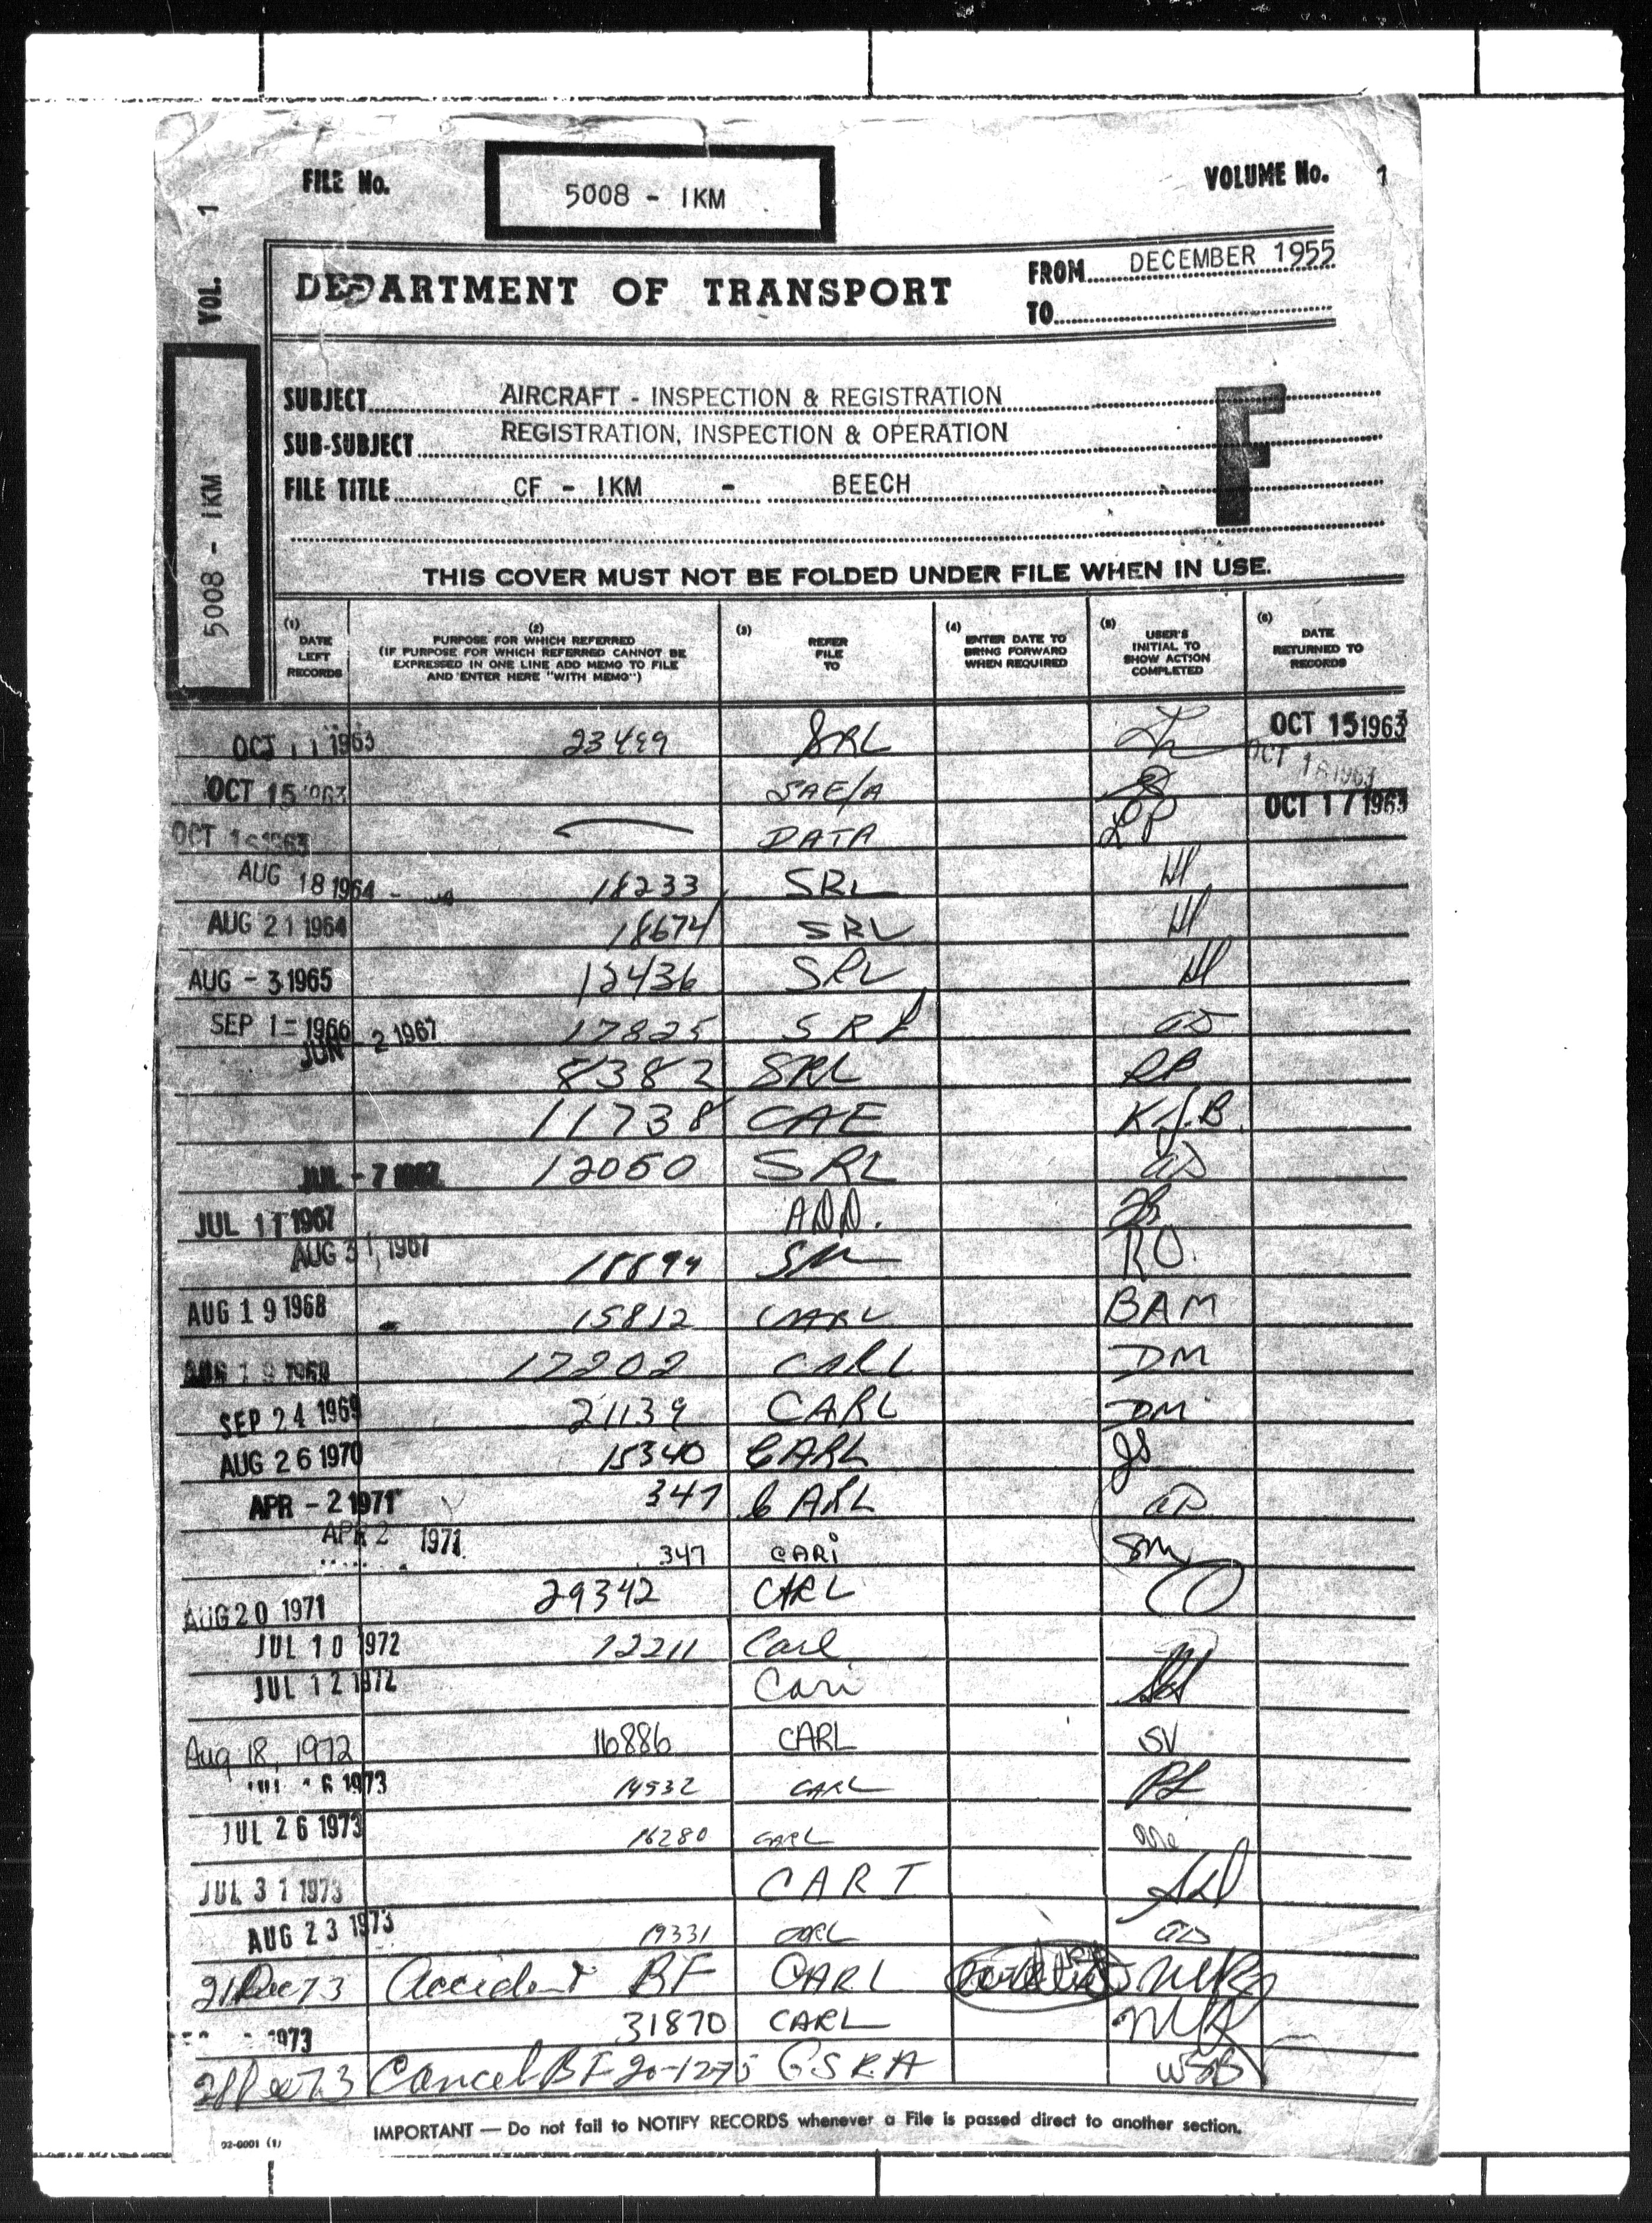 FILE No. 5008 - IKM VOLUME No. 1
VOL. 1
5008 - IKM
DEPARTMENT OF TRANSPORT
FROM DECEMBER 1955
TO
SUBJECT AIRCRAFT - INSPECTION & REGISTRATION
SUB-SUBJECT REGISTRATION, INSPECTION & OPERATION
FILE TITLE CF - IKM - BEECH
F
THIS COVER MUST NOT BE FOLDED UNDER FILE WHEN IN USE.
(1) DATE LEFT RECORDS
(2) PURPOSE FOR WHICH REFERRED (IF PURPOSE FOR WHICH REFERRED CANNOT BE EXPRESSED IN ONE LINE ADD MEMO TO FILE AND ENTER HERE "WITH MEMO")
(3) REFER FILE TO
(4) ENTER DATE TO BRING FORWARD WHEN REQUIRED
(5) USER'S INITIAL TO SHOW ACTION COMPLETED
(6) DATE RETURNED TO RECORDS
OCT 11 1963 23499 SRL OCT 15 1963
OCT 15 1963 SAE/A OCT 16 1963
OCT 16 1963 DATA LP OCT 17 1963
AUG 18 1964 18233 SRL
AUG 21 1964 18674 SRL
AUG - 3 1965 12436 SRL
SEP 1 - 1966 17825 SRL
JUN - 2 1967 8382 SRL RB
11738 CAE K.J.B.
JUL - 7 1967 12050 SRL
JUL 11 1967 ADD.
AUG 31 1967 18694 RO.
AUG 19 1968 15812 CARL BAM
AUG 19 1969 17202 CARL DM
SEP 24 1969 21139 CARL DM
AUG 26 1970 15340 CARL JS
APR - 2 1971 347 CARL
APR 2 1971 347 CARI SM
AUG 20 1971 29342 CARL
JUL 10 1972 12211 Carl
JUL 12 1972 Cari
Aug 18, 1972 16886 CARL SV
1973 14532 CARL
JUL 26 1973 16280 CARL
JUL 31 1973 CARI
AUG 23 1973 19331 CARL
21 Dec 73 Accident BF CARL
1973 31870 CARL
28 Dec 73 Cancel BF 20-12-75
IMPORTANT — Do not fail to NOTIFY RECORDS whenever a File is passed direct to another section.
02-0001 (1)